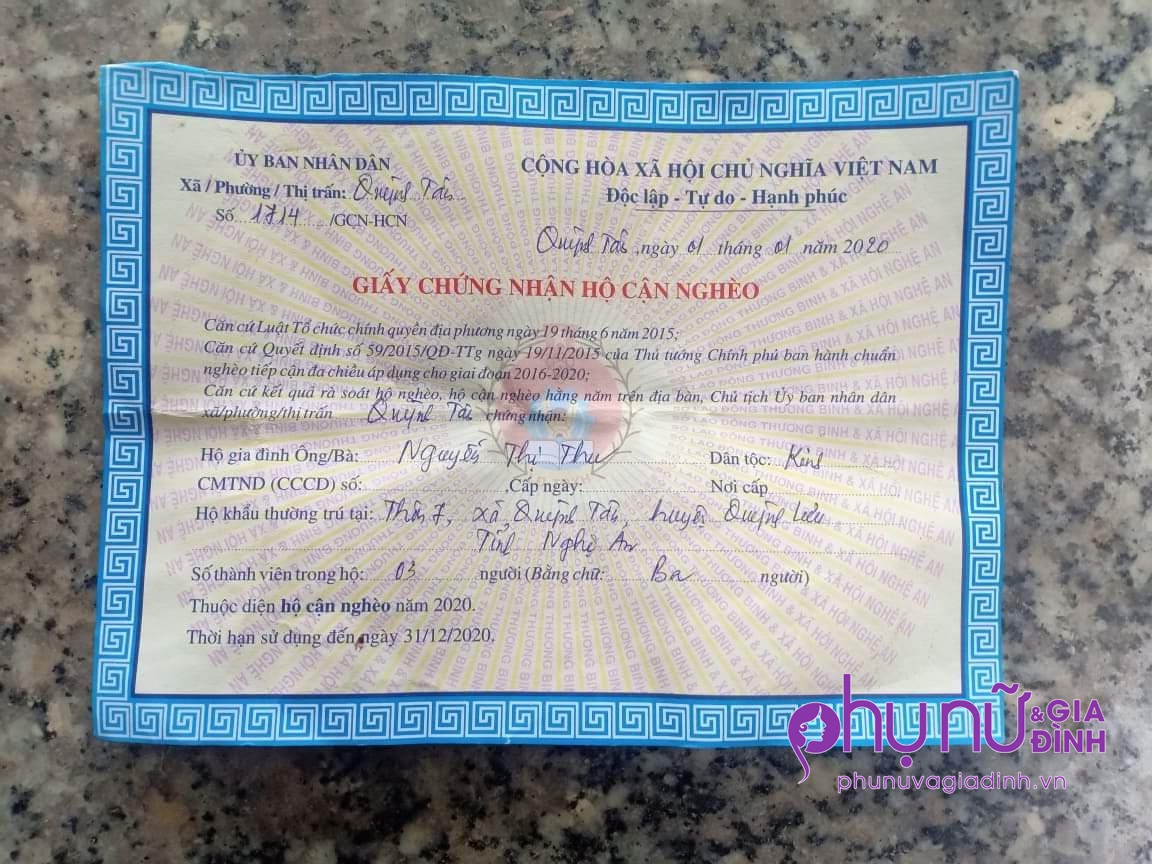 ỦY BAN NHÂN DÂN
Xã / Phường / Thị trấn: Quỳnh Tân
Số 1714 /GCN-HCN
CỘNG HÒA XÃ HỘI CHỦ NGHĨA VIỆT NAM
Độc lập - Tự do - Hạnh phúc
Quỳnh Tân, ngày 01 tháng 01 năm 2020
GIẤY CHỨNG NHẬN HỘ CẬN NGHÈO
Căn cứ Luật Tổ chức chính quyền địa phương ngày 19 tháng 6 năm 2015;
Căn cứ Quyết định số 59/2015/QĐ-TTg ngày 19/11/2015 của Thủ tướng Chính phủ ban hành chuẩn
nghèo tiếp cận đa chiều áp dụng cho giai đoạn 2016-2020;
Căn cứ kết quả rà soát hộ nghèo, hộ cận nghèo hằng năm trên địa bàn, Chủ tịch Ủy ban nhân dân
xã/phường/thị trấn Quỳnh Tân chứng nhận:
Hộ gia đình Ông/Bà: Nguyễn Thị Thu Dân tộc: Kinh
CMTND (CCCD) số: ,Cấp ngày: Nơi cấp
Hộ khẩu thường trú tại: Thôn 7, xã Quỳnh Tân, huyện Quỳnh Lưu
Tỉnh Nghệ An
Số thành viên trong hộ: 03 người (Bằng chữ: Ba người)
Thuộc diện hộ cận nghèo năm 2020.
Thời hạn sử dụng đến ngày 31/12/2020.
phụ nữ & GIA ĐÌNH
phunuvagiadinh.vn